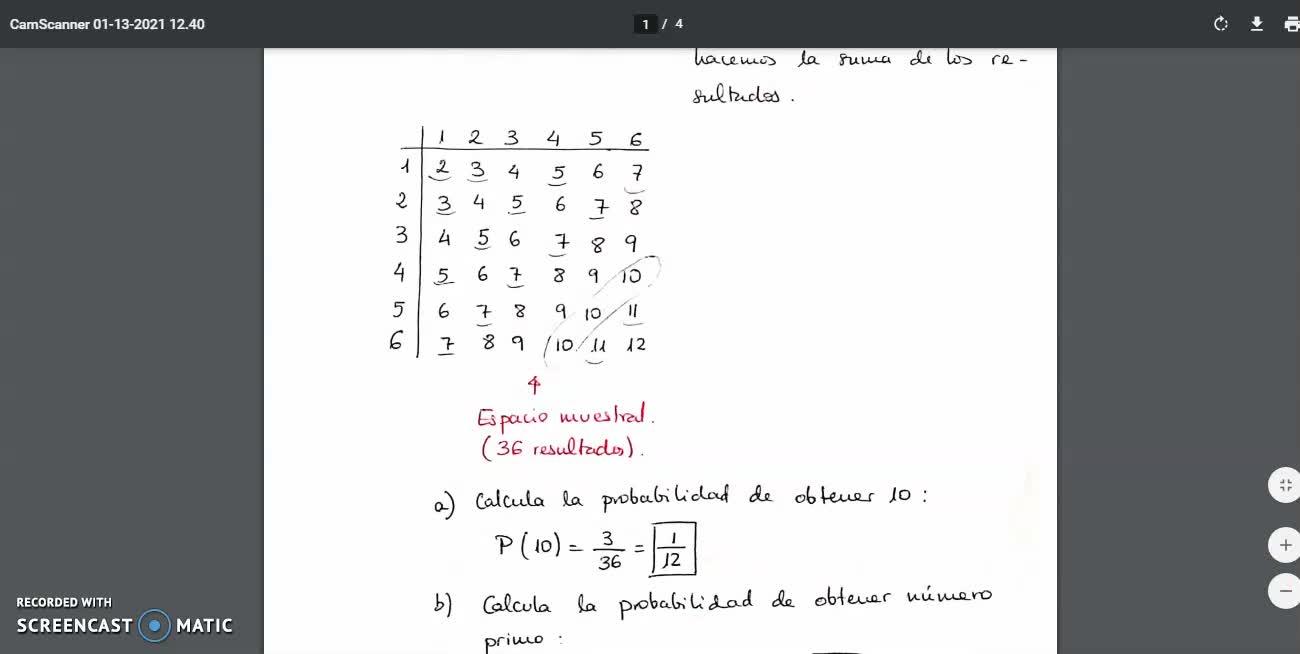 CamScanner 01-13-2021 12.40
1 / 4
hacemos la suma de los re-
sultados.
1 2 3 4 5 6
1 2 3 4 5 6 7
2 3 4 5 6 7 8
3 4 5 6 7 8 9
4 5 6 7 8 9 10
5 6 7 8 9 10 11
6 7 8 9 10 11 12
Espacio muestral.
(36 resultados).
a) Calcula la probabilidad de obtener 10:
P(10) = 3/36 = 1/12
b) Calcula la probabilidad de obtener número
primo:
RECORDED WITH
SCREENCAST MATIC